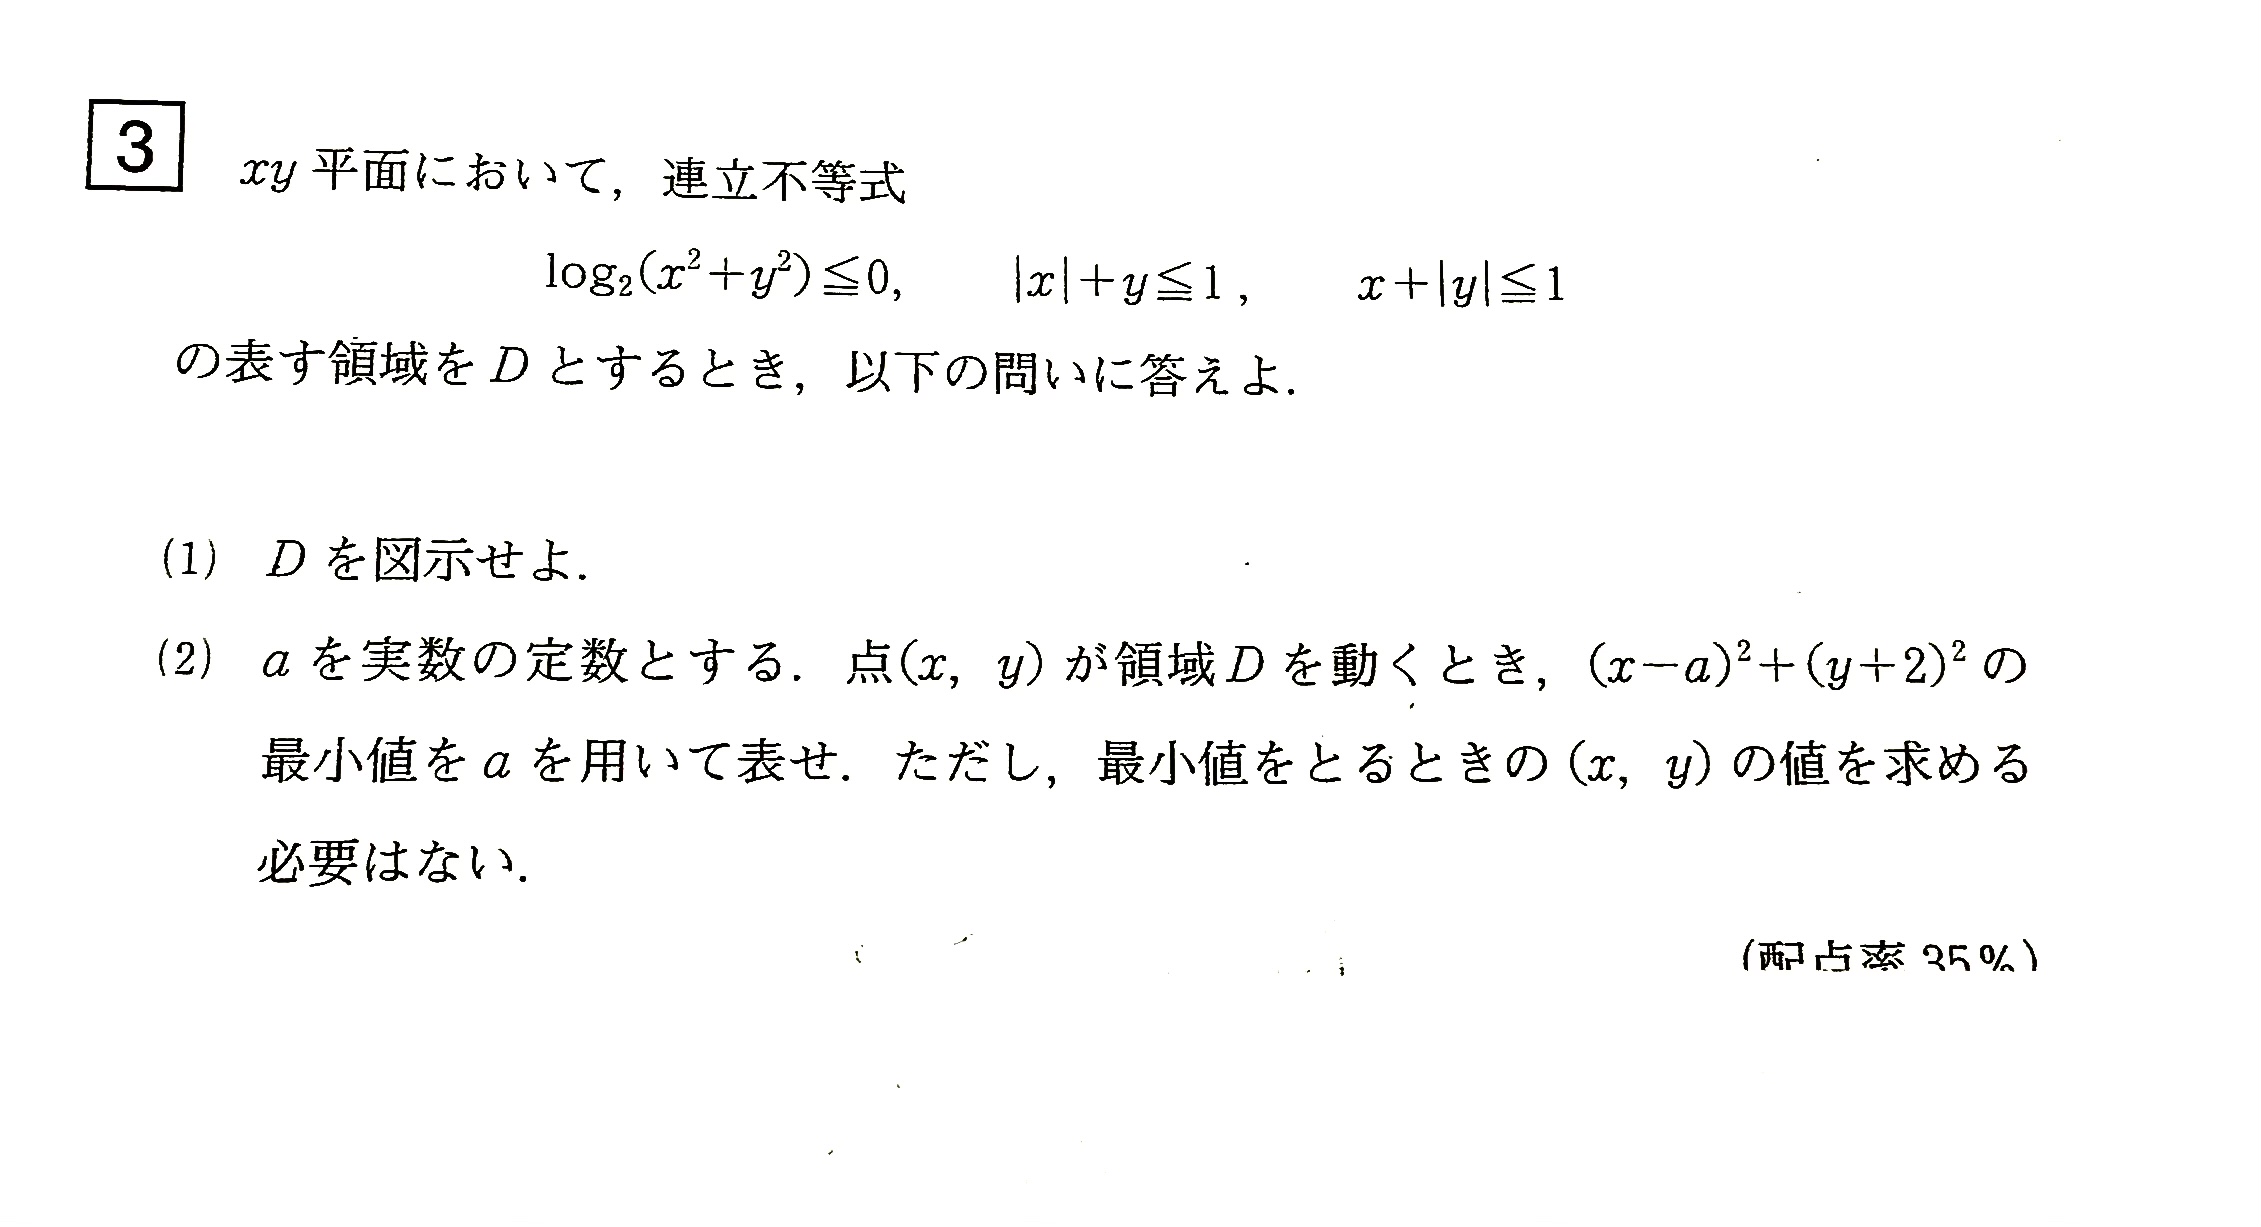 3
xy 平面において，連立不等式
log₂(x²+y²)≦0,　|x|+y≦1,　x+|y|≦1
の表す領域を D とするとき，以下の問いに答えよ．
(1) D を図示せよ．
(2) a を実数の定数とする．点(x, y) が領域 D を動くとき，(x−a)²+(y+2)² の
最小値を a を用いて表せ．ただし，最小値をとるときの (x, y) の値を求める
必要はない．
(配点率 35％)